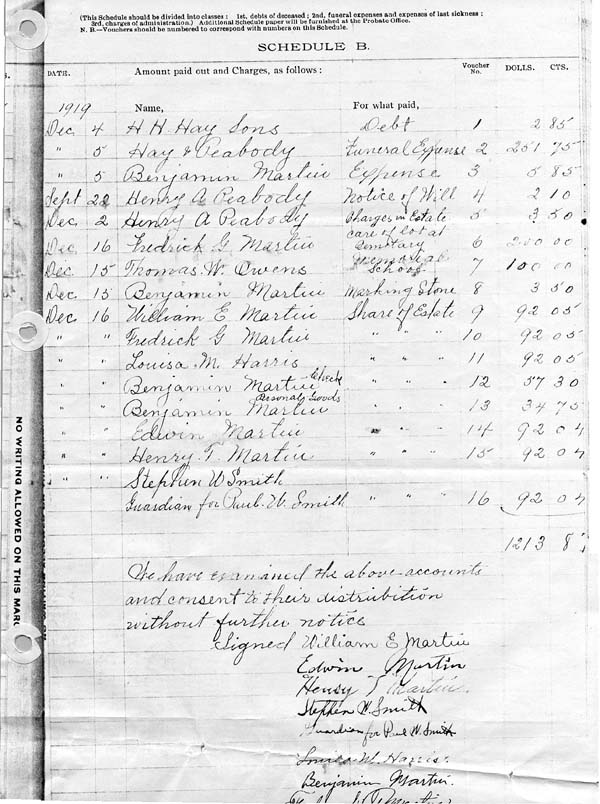 (This Schedule should be divided into classes: 1st, debts of deceased; 2nd, funeral expenses and expenses of last sickness;
3rd, charges of administration.) Additional Schedule paper will be furnished at the Probate Office.
N. B.—Vouchers should be numbered to correspond with numbers on this Schedule.
SCHEDULE B.
DATE. Amount paid out and Charges, as follows: Voucher No. DOLLS. CTS.
1919 Name, For what paid,
Dec 4 H H Hay Sons Debt 1 2 85
" 5 Hay & Peabody Funeral Expense 2 251 75
" 5 Benjamin Martin Expense 3 5 85
Sept 22 Henry A Peabody Notice of Will 4 2 10
Dec 2 Henry A Peabody Charges in Estate 5 3 50
Dec 16 Fredrick G Martin care of lot at Cemetary 6 200 00
Dec 15 Thomas W. Owens Memorial School 7 100 00
Dec 15 Benjamin Martin Marking Stone 8 3 50
Dec 16 William E Martin Share of Estate 9 92 05
" " Fredrick G Martin " " " 10 92 05
" " Louisa M. Harris " " " 11 92 05
" " Benjamin Martin Check " " " 12 57 30
" " Benjamin Martin Personal Goods " " " 13 34 75
" " Edwin Martin " " " 14 92 04
" " Henry T. Martin " " " 15 92 04
" " Stephen W Smith
Guardian for Paul W. Smith " " " 16 92 04
1213 8
We have examined the above accounts
and consent to their distribution
without further notice
Signed William E Martin
Edwin Martin
Henry T Martin.
Stephen W. Smith
Guardian for Paul W Smith
Louisa M. Harris.
Benjamin Martin.
NO WRITING ALLOWED ON THIS MARG